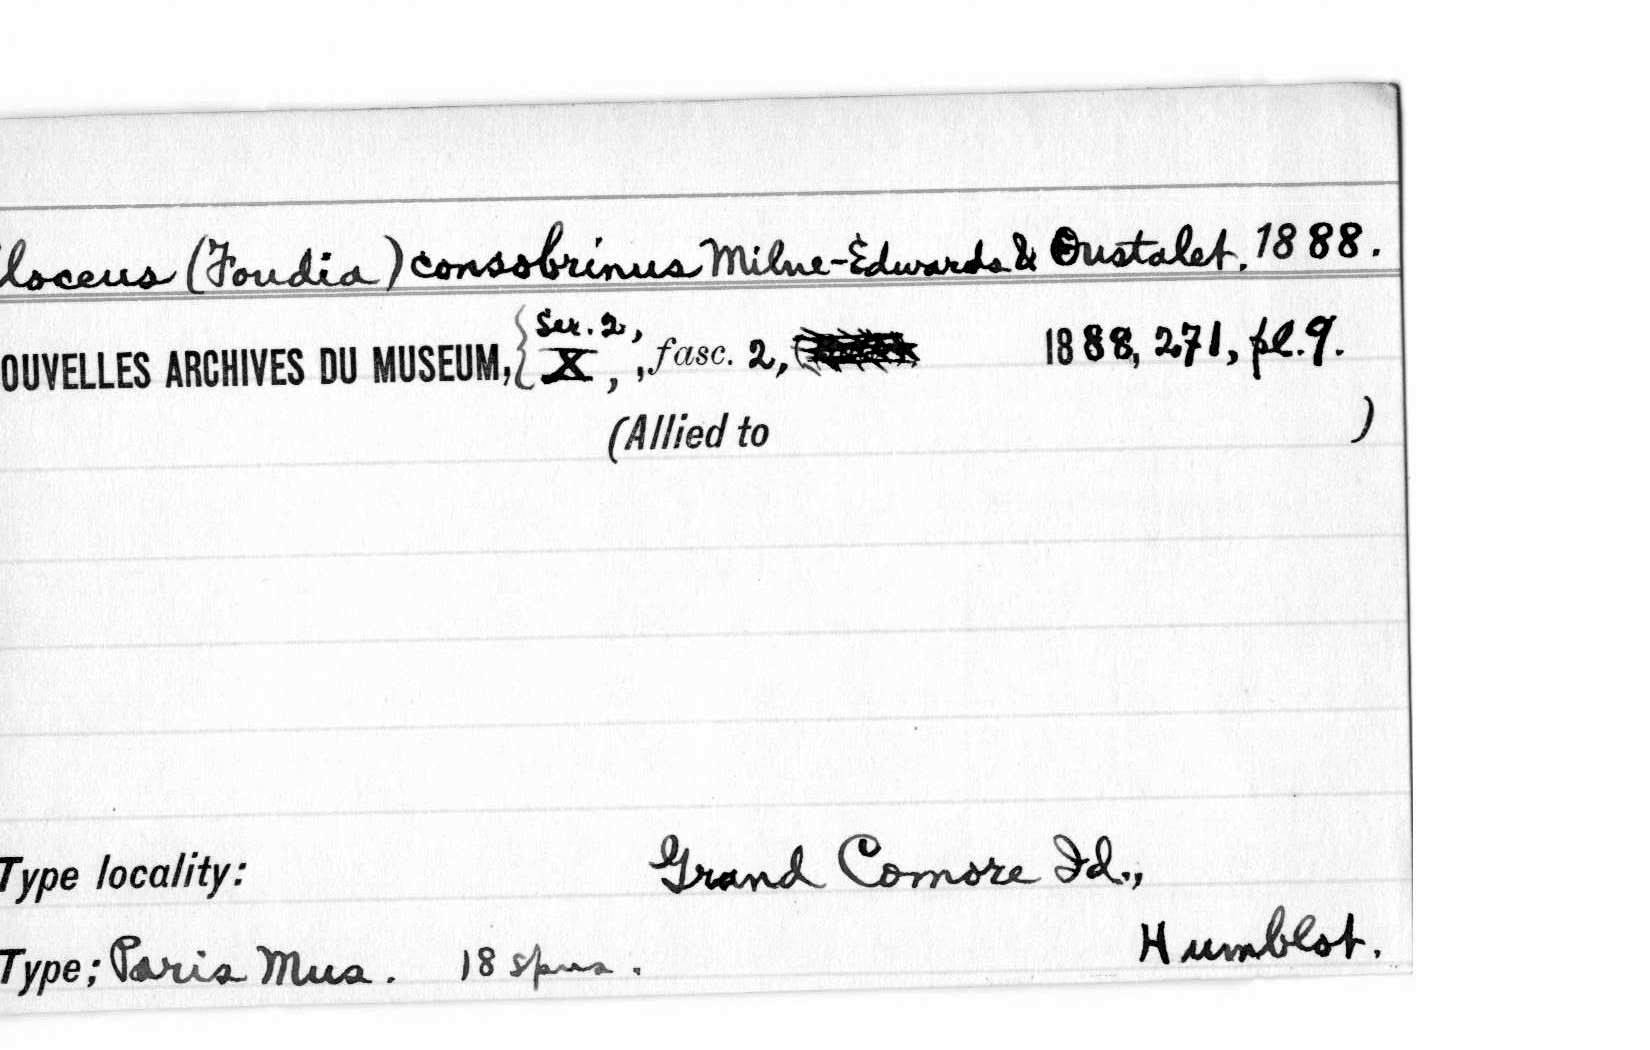 loceus (Foudia) consobrinus Milne-Edwards & Oustalet, 1888.
OUVELLES ARCHIVES DU MUSEUM, { Ser. 2, X, , fasc. 2, 1888, 271, pl. 9.
(Allied to )
Type locality: Grand Comore Id.,
Humblot.
Type; Paris Mus. 18 spms.